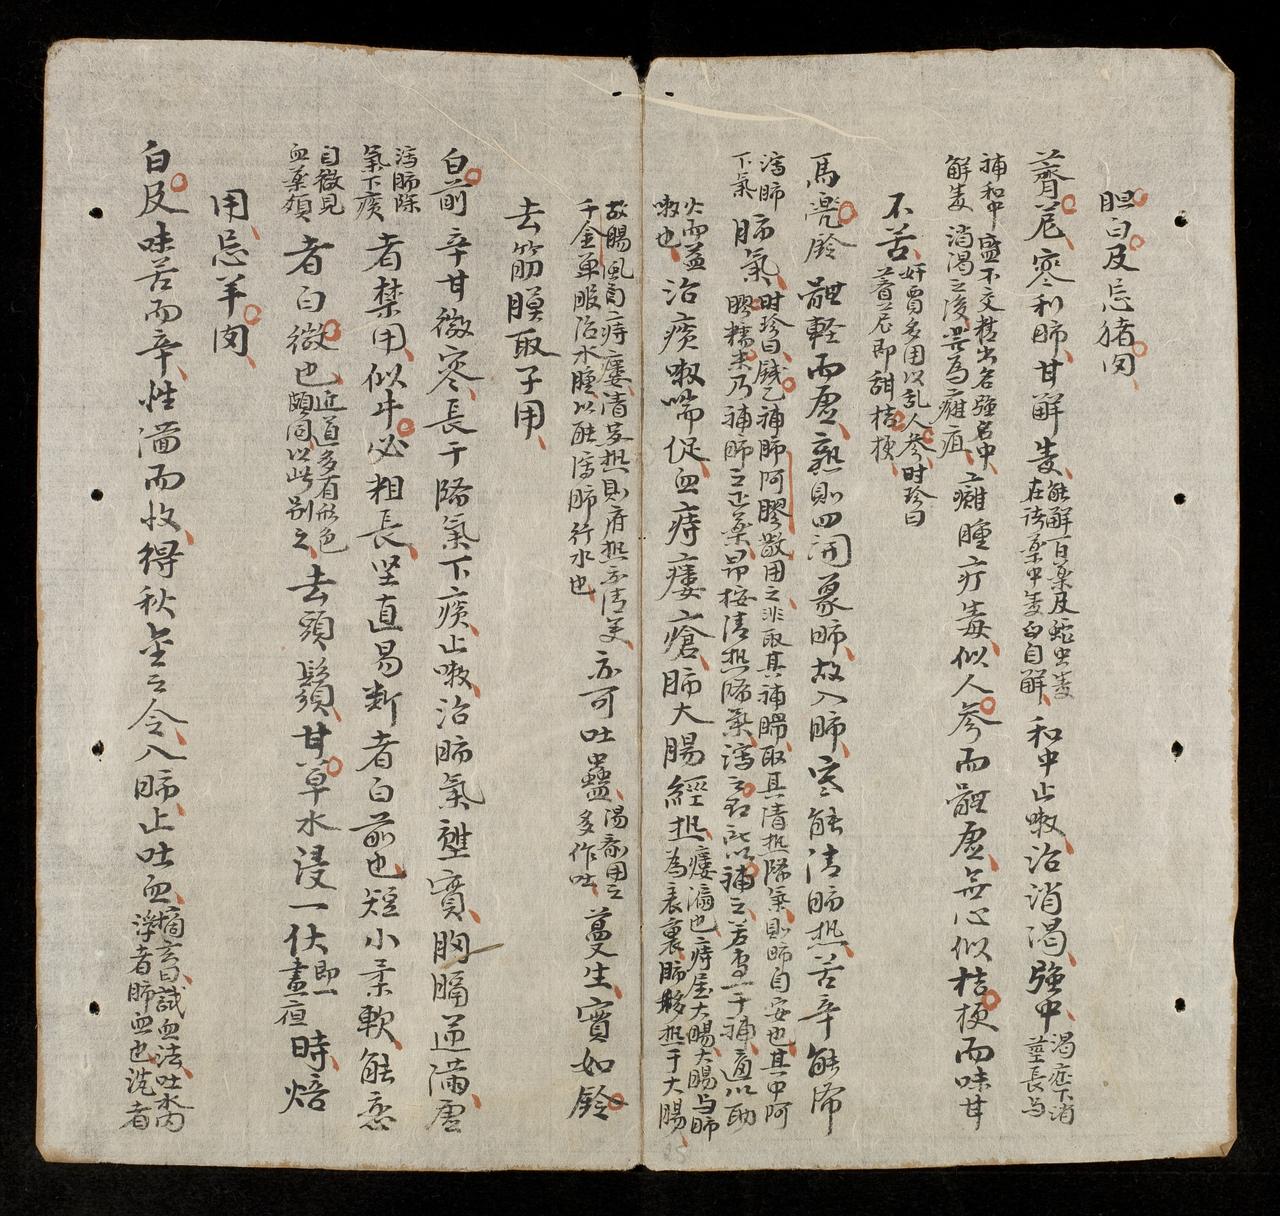 胆白及忌猪肉
薺苨寒利肺甘解毒能解百藥及蛇虫毒
在諸藥中毒白自解
和中止嗽治消渴強中渴症下消
莖長与
補和中盛不交精出名強名中
解毒消渴之後発為癰疽
癰腫疔毒似人參而體虛無心似桔梗而味甘
不苦奸賈多用以乱人參時珍曰
薺苨即甜桔梗
馬兜鈴體軽而虛熟則四開象肺故入肺寒能清肺熱苦辛能降
瀉肺
下氣
肺氣時珍曰錢乙補肺阿膠散用之非取其補肺取其清熱降氣則肺自安也其中阿
膠糯米乃補肺之正藥昂按清熱降氣瀉之即所以補之若專一于補適以助
火而益
嗽也
治痰嗽喘促血痔瘻瘡肺大腸經熱瘻漏也痔属大腸大腸与肺
為表裏肺移熱于大腸
故腸風自痔瘻清臭熱則府熱亦清矣
千金單服治水腫以能瀉肺行水也
亦可吐蠱湯剤用之
多作吐
蔓生實如鈴
去筋膜取子用
白前辛甘微寒長于降氣下痰止嗽治肺氣壅實胸膈逆滿虛
瀉肺除
氣下痰
者禁用似牛必粗長坚直易断者白前也短小柔軟能𢎞
白微見
血藥類
者白微也近道多有形色
頗同以此别之
去頭鬚甘草水浸一伏即一
晝夜
時焙
用忌羊肉
白及味苦而辛性濇而收得秋金之令入肺止吐血摘玄曰試血法吐水内
浮者肺血也沈者